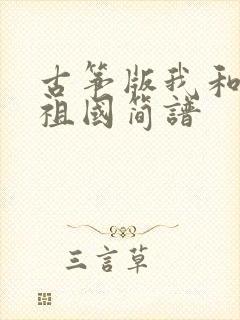 古筝版我和
祖國简譜
三言草